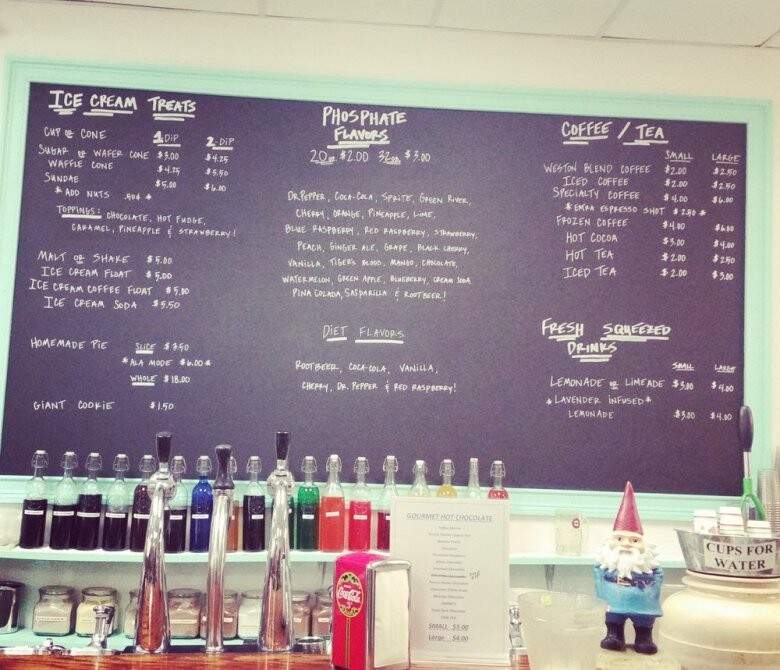 ICE CREAM TREATS
CUP OR CONE 1 DIP 2-DIP
SUGAR OR WAFER CONE $3.00 $4.25
WAFFLE CONE $4.25 $5.50
SUNDAE $5.00 $6.00
* ADD NUTS .50¢ *
TOPPINGS: CHOCOLATE, HOT FUDGE,
CARAMEL, PINEAPPLE & STRAWBERRY!
MALT OR SHAKE $5.00
ICE CREAM FLOAT $5.00
ICE CREAM COFFEE FLOAT $5.00
ICE CREAM SODA $5.50
HOMEMADE PIE SLICE $3.50
*ALA MODE $6.00*
WHOLE $18.00
GIANT COOKIE $1.50
PHOSPHATE
FLAVORS
20oz $2.00 32oz $3.00
DR.PEPPER, COCA-COLA, SPRITE, GREEN RIVER,
CHERRY, ORANGE, PINEAPPLE, LIME,
BLUE RASPBERRY, RED RASPBERRY, STRAWBERRY,
PEACH, GINGER ALE, GRAPE, BLACK CHERRY,
VANILLA, TIGER'S BLOOD, MANGO, CHOCOLATE,
WATERMELON, GREEN APPLE, BLUEBERRY, CREAM SODA
PINA COLADA, SASPARILLA & ROOTBEER!
DIET FLAVORS
ROOTBEER, COCA-COLA, VANILLA,
CHERRY, DR. PEPPER & RED RASPBERRY!
COFFEE / TEA
SMALL LARGE
WESTON BLEND COFFEE $2.00 $2.50
ICED COFFEE $2.00 $2.50
SPECIALTY COFFEE $4.00 $6.00
* EXTRA ESPRESSO SHOT $2.50 *
FROZEN COFFEE $4.00 $6.00
HOT COCOA $3.00 $4.00
HOT TEA $2.00 $2.50
ICED TEA $2.00 $3.00
FRESH SQUEEZED
DRINKS
SMALL LARGE
LEMONADE OR LIMEADE $3.00 $4.00
* LAVENDER INFUSED *
LEMONADE $3.00 $4.00
GOURMET HOT CHOCOLATE
SMALL $3.00
Large $4.00
Coca-Cola
CUPS FOR
WATER